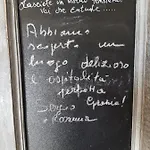 Lasciate in vostro pensiero
voi che entrate.....
Abbiamo
scoperto un
luogo delizioso
l'ospitalità
perfetta
Sergio
+ Rosanna